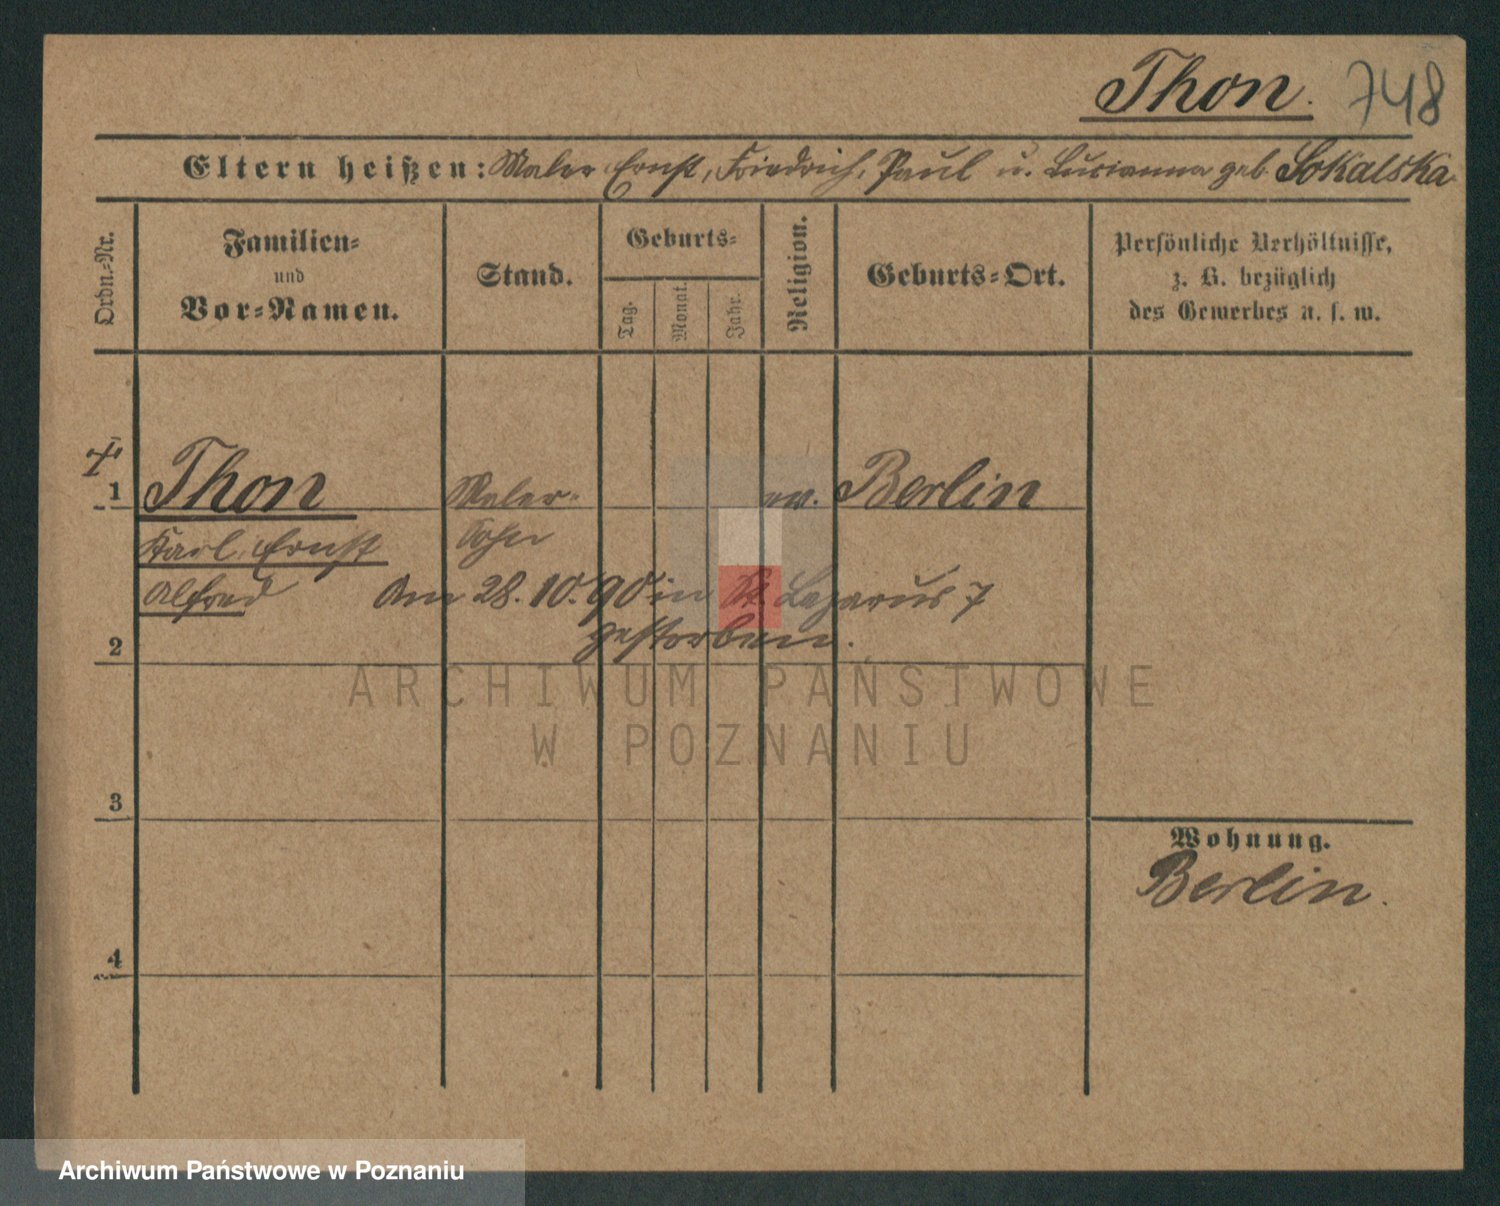 Thon. 748
Eltern heißen: Maler Ernst, Friedrich, Paul u. Lucianna geb. Sokalska
Ordn.-Nr.
Familien-
und
Vor-Namen.
Stand.
Geburts-
Tag.
Monat.
Jahr.
Religion.
Geburts-Ort.
Persönliche Verhältnisse,
z. B. bezüglich
des Gewerbes u. s. w.
1 Thon Maler- ev. Berlin
Karl, Ernst Sohn
Alfred Am 28.10.90 in St. Lazarus 7
gestorben.
2
ARCHIWUM PAŃSTWOWE
W POZNANIU
3
Wohnung.
Berlin.
4
Archiwum Państwowe w Poznaniu